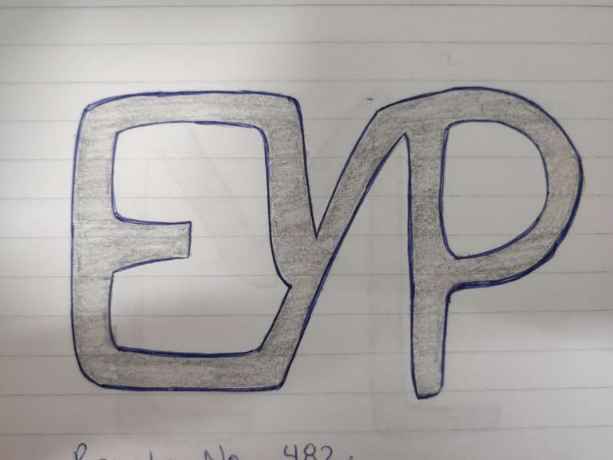 EYP
No 482.